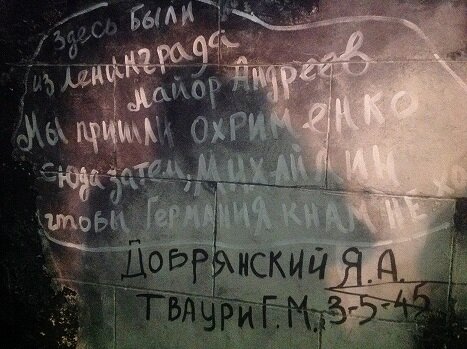 Здесь были
из Ленинграда
майор Андреев
Мы пришли ОХРИМЕНКО
сюда затем, МИХАЙЛИН
чтоби ГЕРМАНИЯ К НАМ НЕ ХО
ДОБРЯНСКИЙ Я.А.
ТВАУРИ Г.М., 3-5-45